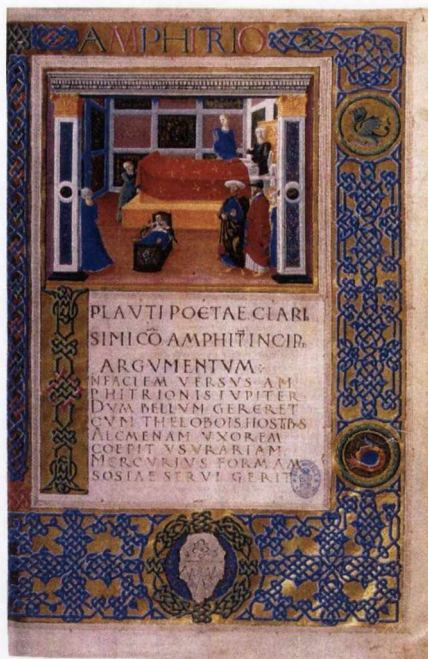 AMPHITRIO
PLAVTI POETAE CLARI
SIMI CŌ AMPHIT̄ INCIP̄
ARGVMENTVM:
IN FACIEM VERSVS AM
PHITRIONIS IVPITER
DVM BELLVM GERERET
CVM THELOBOIS HOSTIBS
ALCMENAM VXOREM
COEPIT VSVRARIAM
MERCVRIVS FORMAM
SOSIAE SERVI GERIT